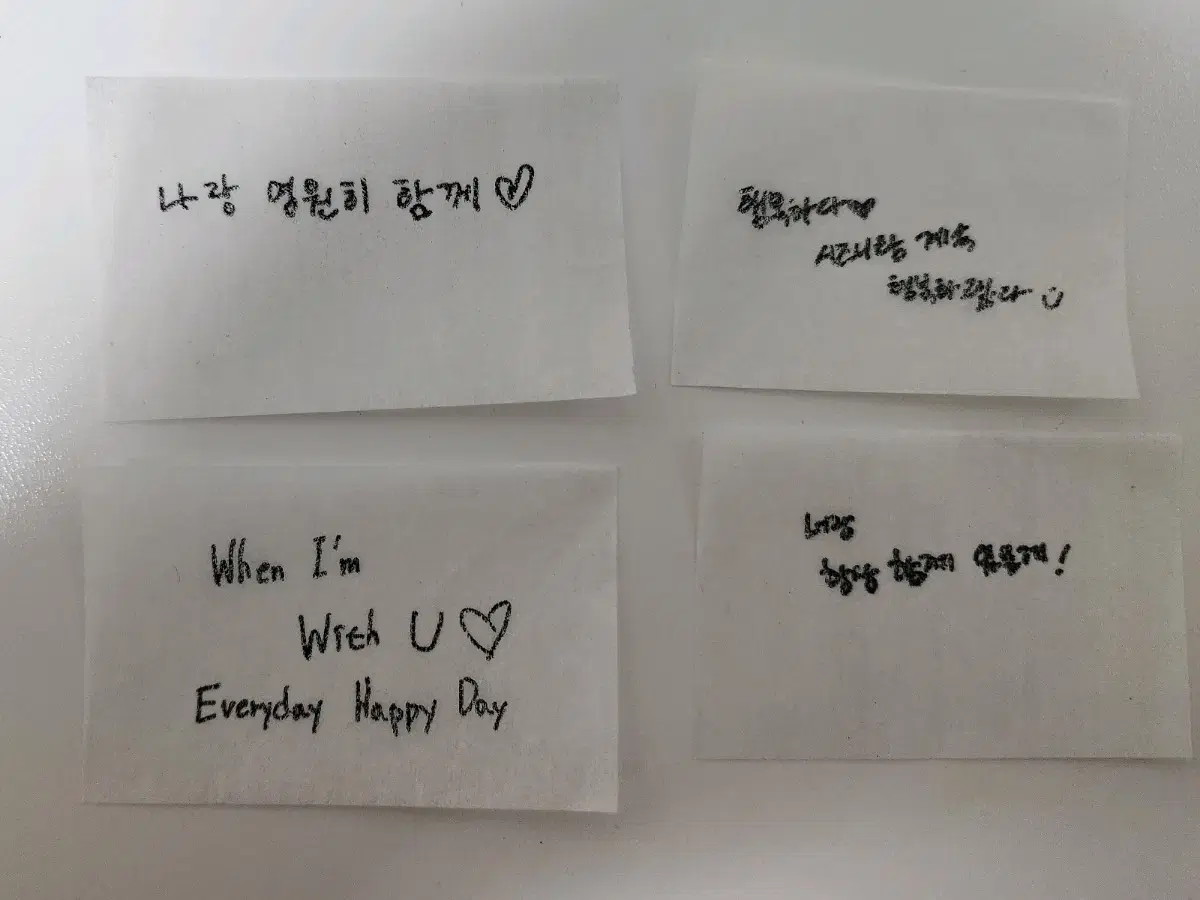 나랑 영원히 함께♡
행복하다♥
시즈니랑 계속
행복하렵니다
When I'm
With U♡
Everyday Happy Day
너랑
항상 함께 있을게!